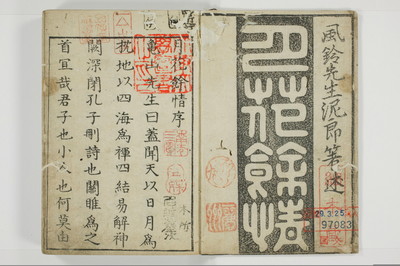 風鈴先生泥郎著述
月花余情
29.3.25
97083
月花餘情序
先生曰蓋聞天以日月為
地以四海為褌四結易解神
關深閉孔子刪詩也關雎為之
首宜哉君子也小人也何莫由